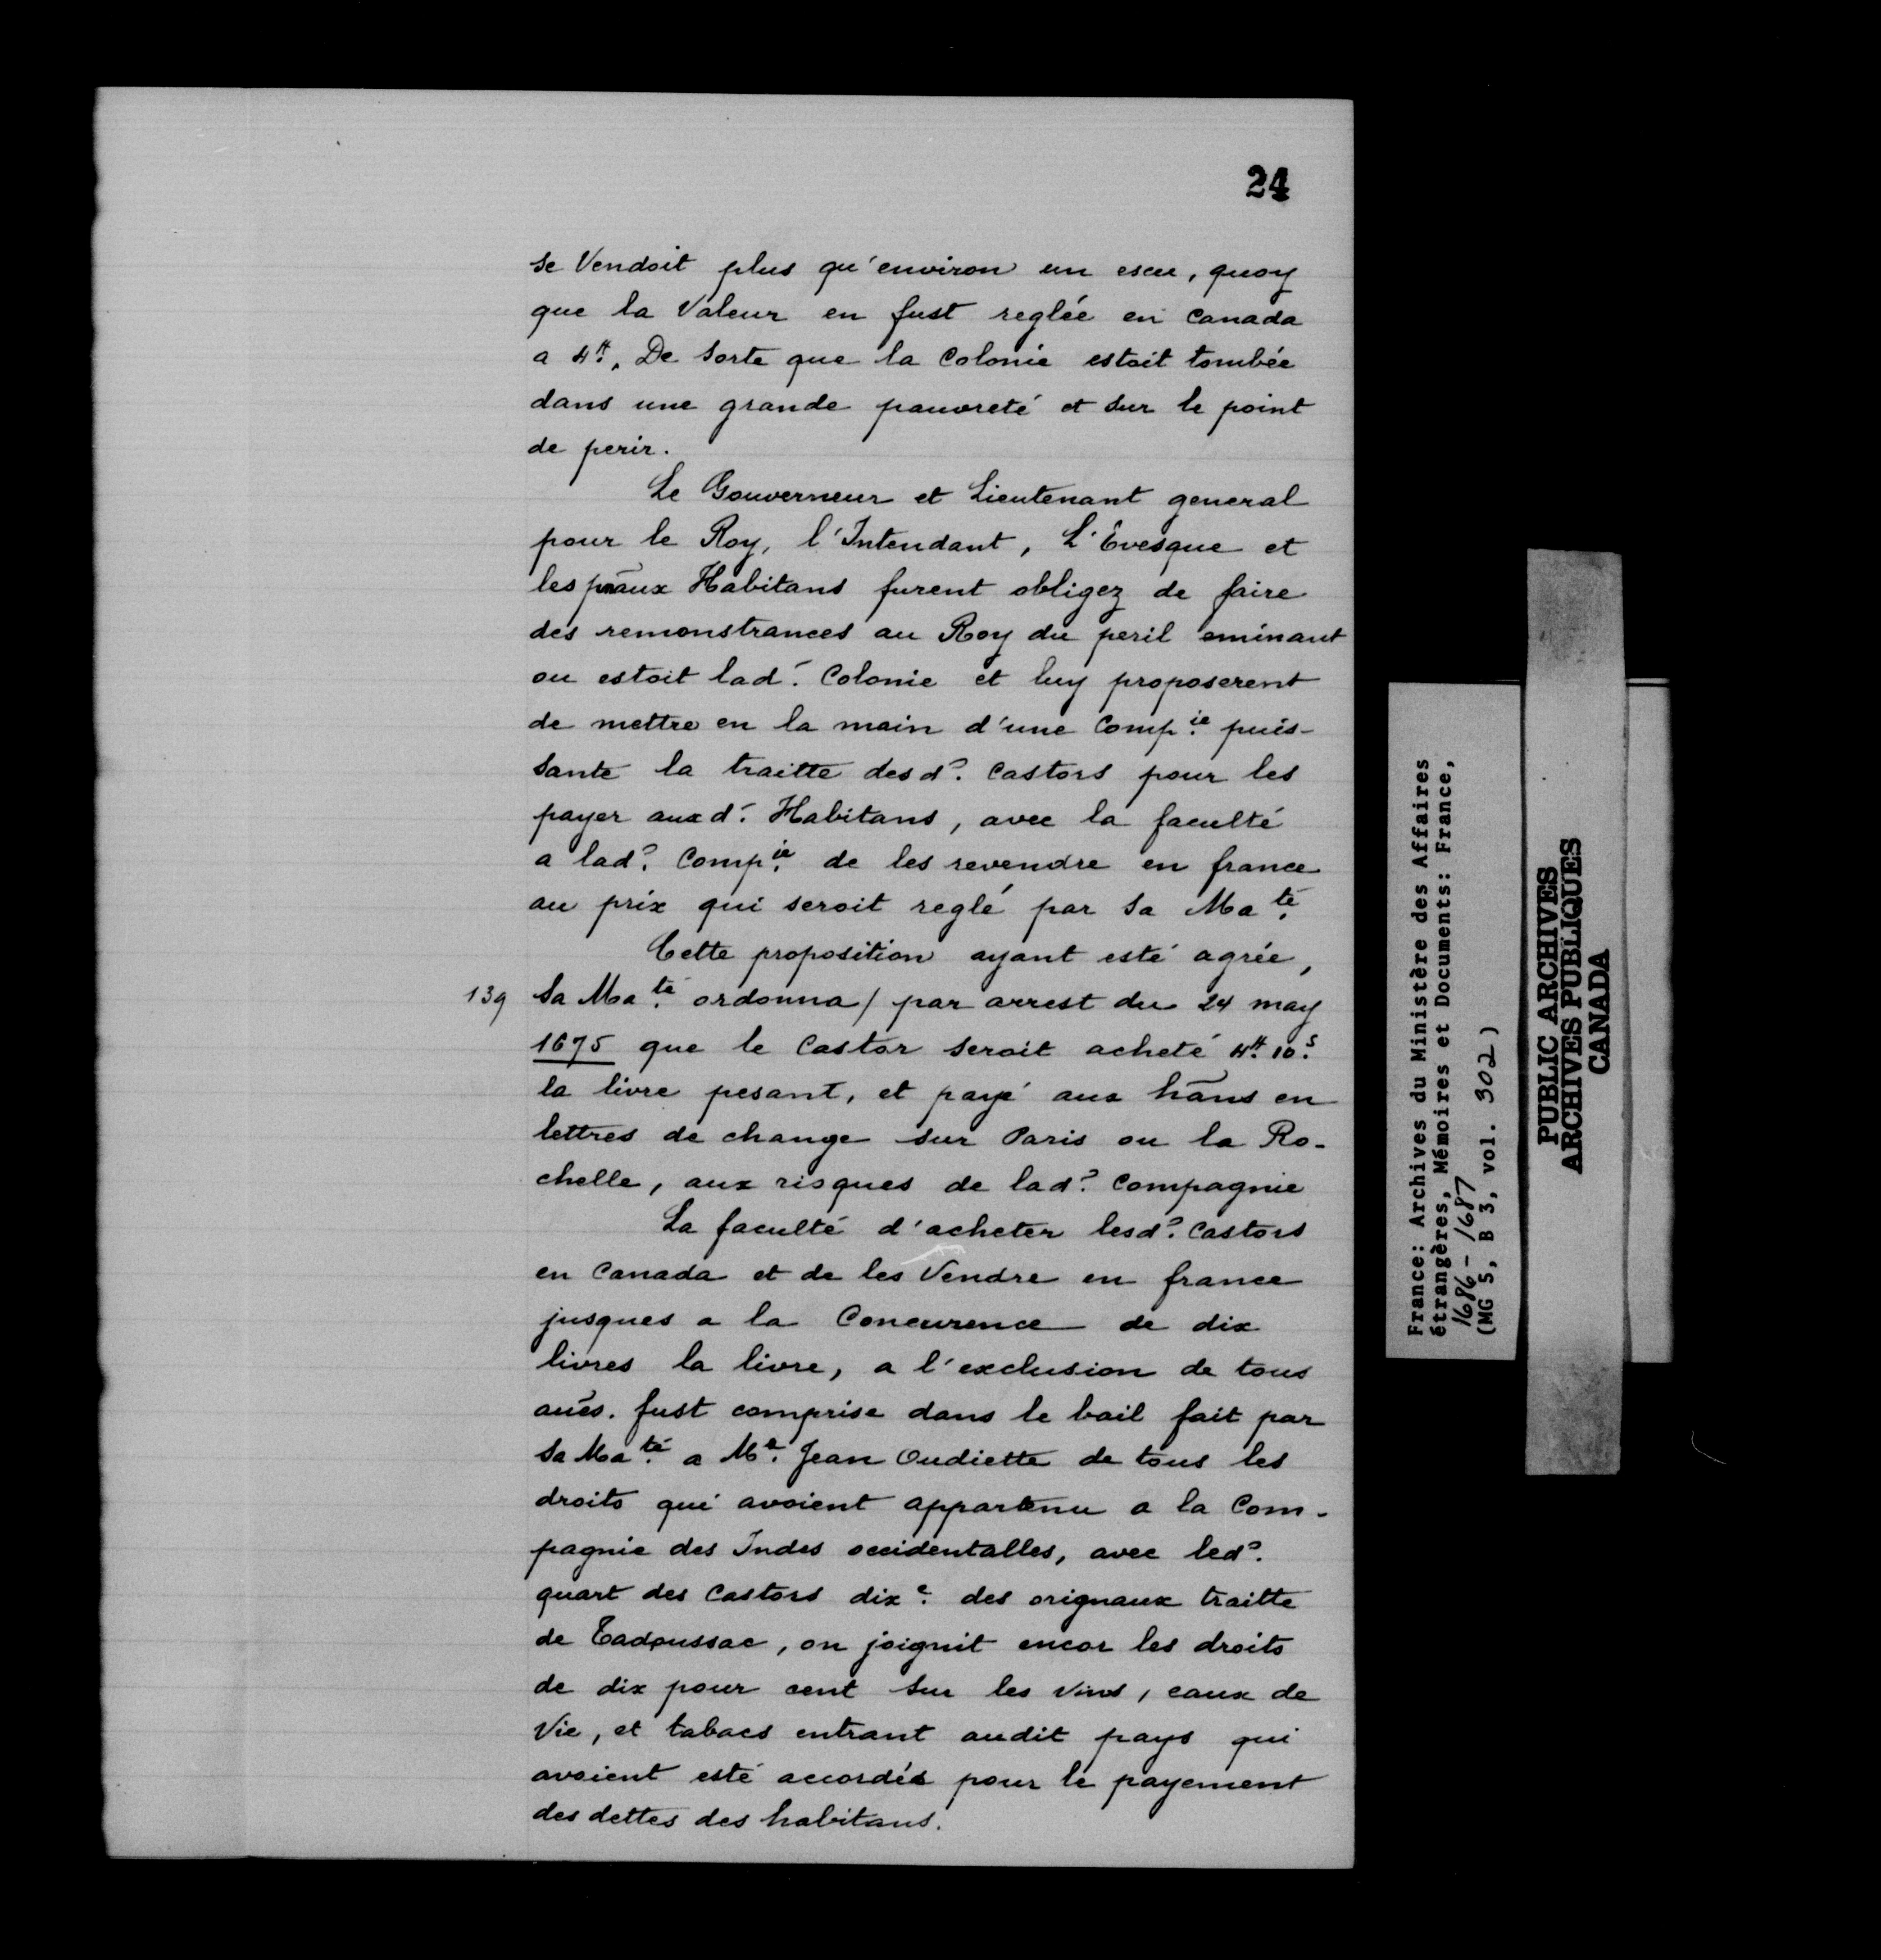 24
se Vendoit plus qu'environ un escu, quoy
que la Valeur en fust reglée en Canada
a 4tt. De sorte que la Colonie estoit tombée
dans une grande pauvreté et sur le point
de perir.
Le Gouverneur et Lieutenant general
pour le Roy, l'Intendant, L'Evesque et
les p̃aux Habitans furent obligez de faire
des remonstrances au Roy du peril eminant
ou estoit lad. Colonie et luy proposerent
de mettre en la main d'une Comp.ie puis-
sante la traitte desd. Castors pour les
payer auxd. Habitans, avec la faculté
a lad. Comp.ie de les revendre en france
au prix qui seroit reglé par Sa Ma.té
Cette proposition ayant esté agrée,
139 Sa Ma.té ordonna / par arrest du 24 may
1675 que le Castor seroit acheté 4tt. 10.s
la livre pesant, et payé aux hãns en
lettres de change sur Paris ou la Ro-
chelle, aux risques de lad. Compagnie
La faculté d'acheter lesd. Castors
en Canada et de les Vendre en france
jusques a la Concurence de dix
livres la livre, a l'exclusion de tous
aũes. fust comprise dans le bail fait par
Sa Ma.té a Me. Jean Oudiette de tous les
droits qui avoient appartenu a la Com-
pagnie des Indes occidentalles, avec led.
quart des Castors dixe. des orignaux traitte
de Tadoussac, on joignit encor les droits
de dix pour cent sur les Vins, eaux de
Vie, et tabacs entrant audit pays qui
avoient esté accordés pour le payement
des dettes des habitans.
France: Archives du Ministère des Affaires
étrangères, Mémoires et Documents: France,
1686-1687
(MG 5, B 3, vol. 302)
PUBLIC ARCHIVES
ARCHIVES PUBLIQUES
CANADA